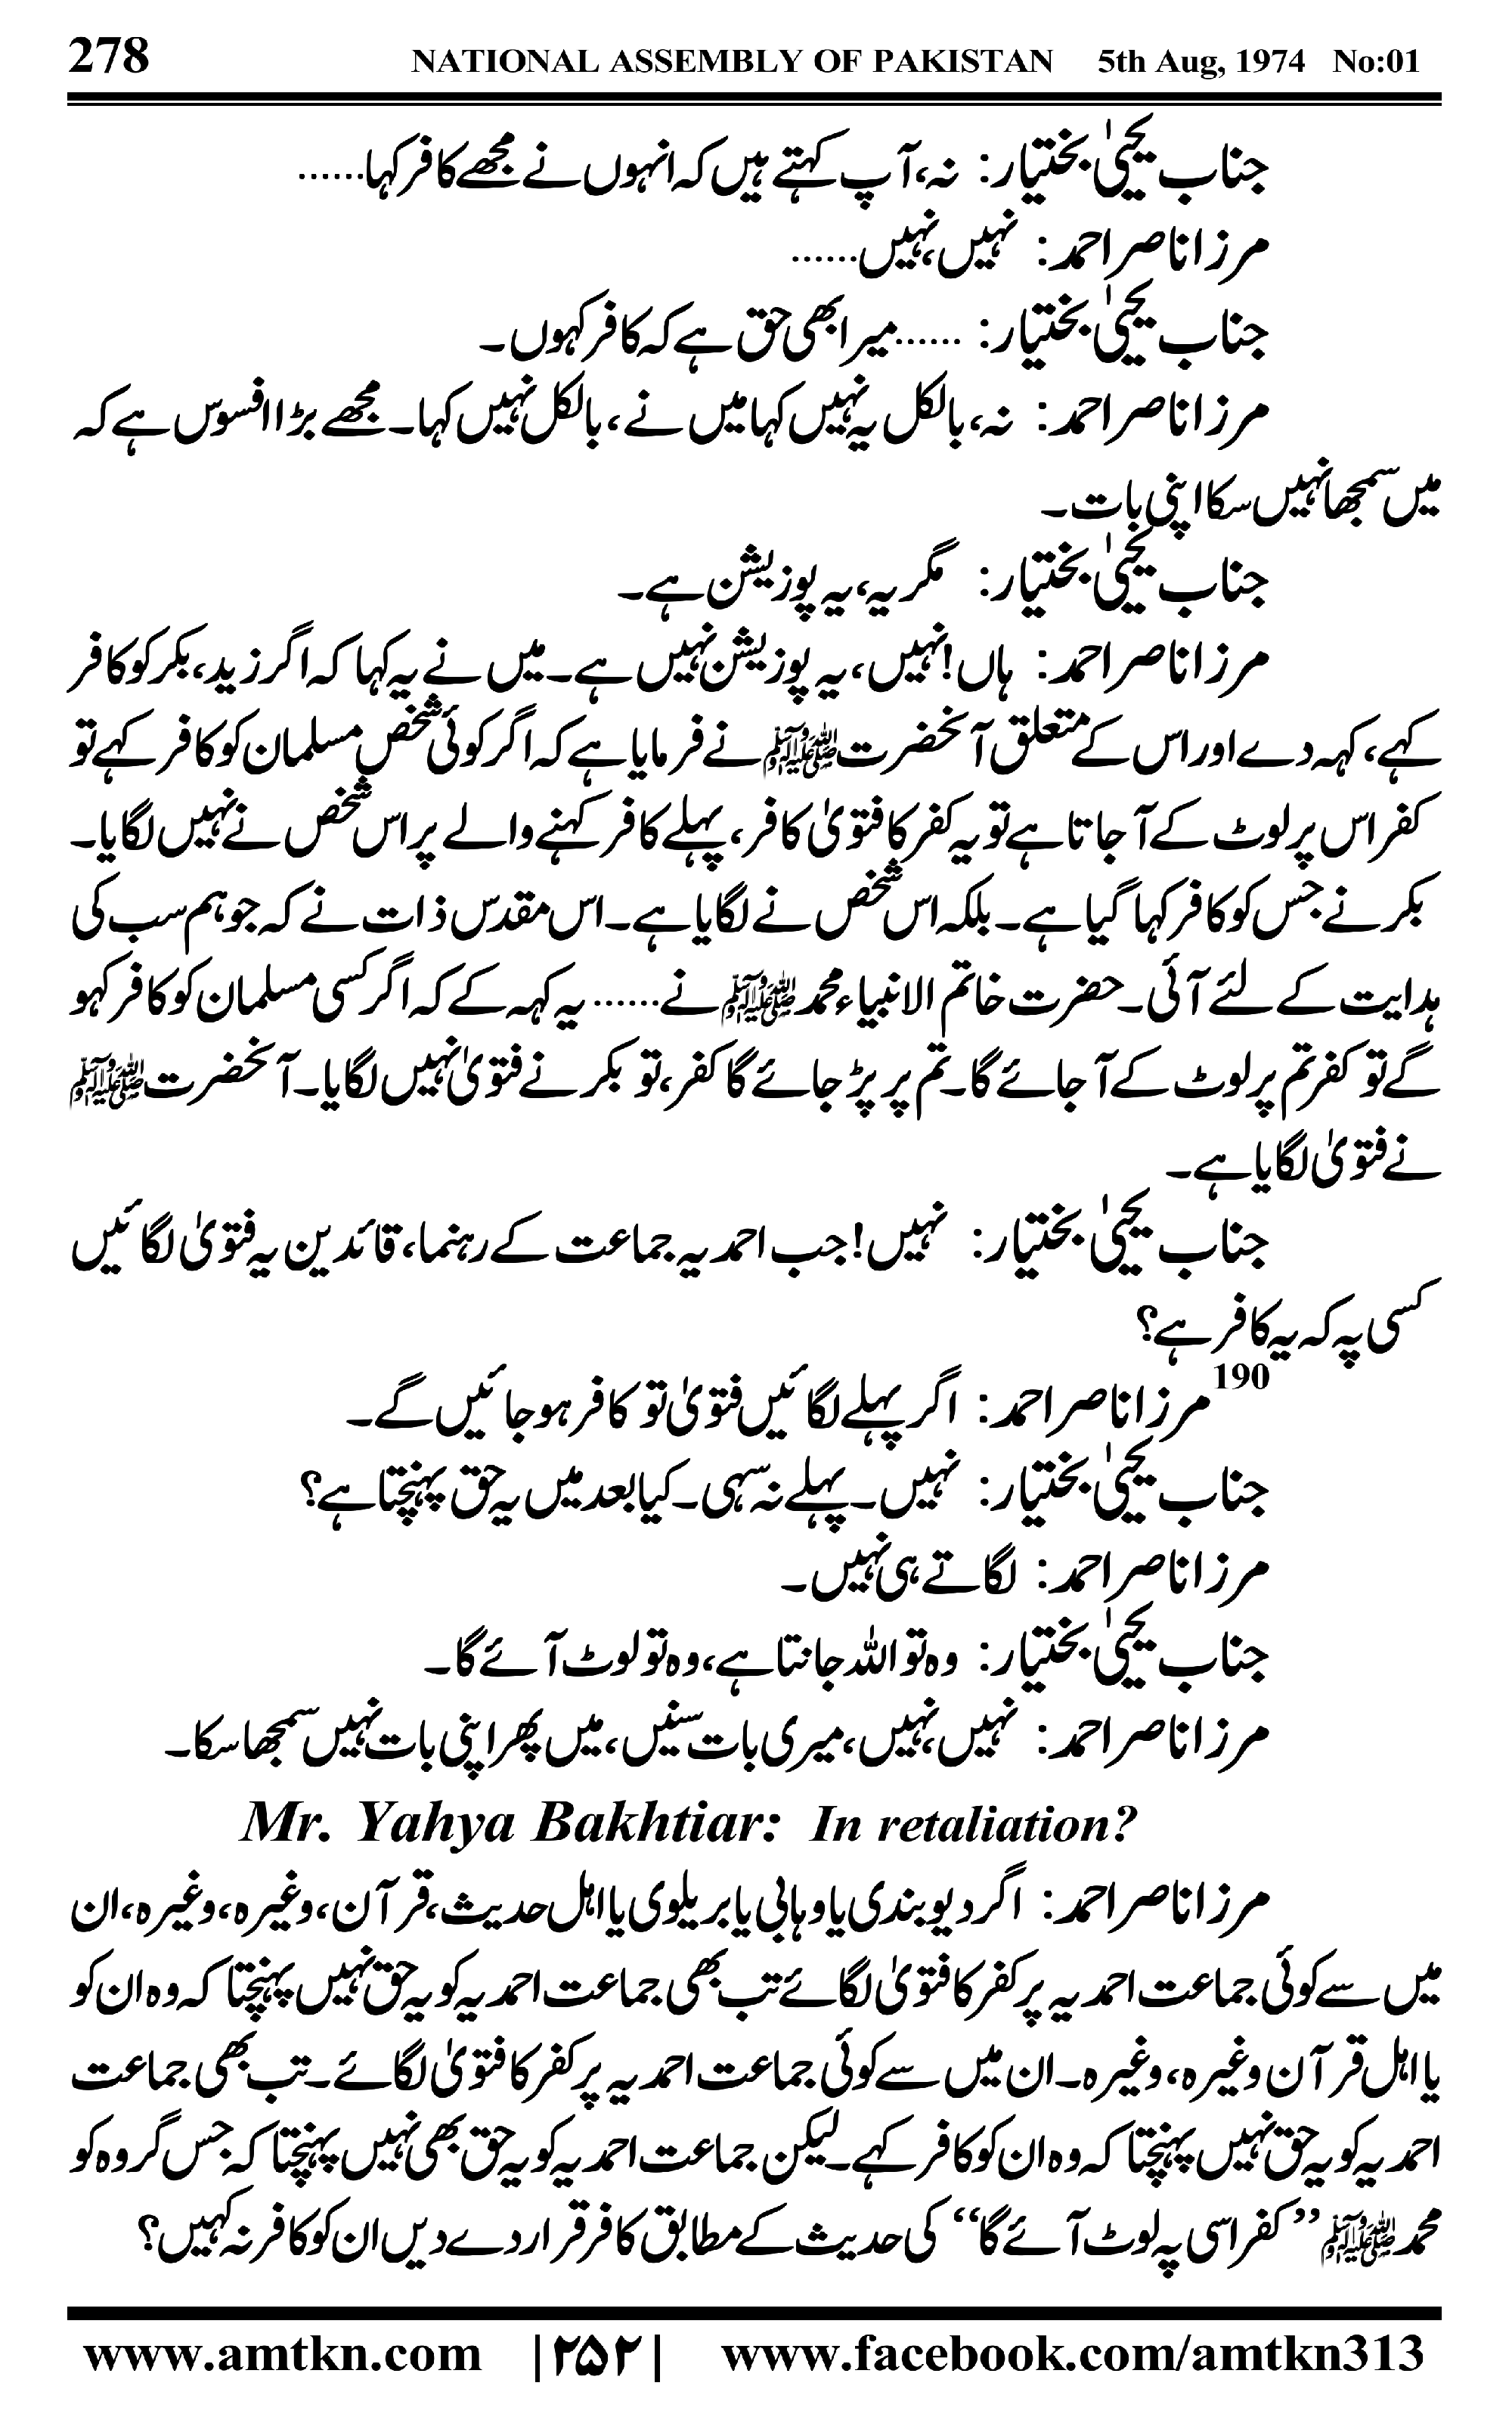 278 NATIONAL ASSEMBLY OF PAKISTAN 5th Aug, 1974 No:01
جناب یحییٰ بختیار: نہ، آپ کہتے ہیں کہ انہوں نے مجھے کافر کہا......
مرزا ناصر احمد: نہیں، نہیں......
جناب یحییٰ بختیار: ......میرا بھی حق ہے کہ کافر کہوں۔
مرزا ناصر احمد: نہ، بالکل یہ نہیں کہا میں نے، بالکل نہیں کہا۔ مجھے بڑا افسوس ہے کہ
میں سمجھا نہیں سکا اپنی بات۔
جناب یحییٰ بختیار: مگر یہ، یہ پوزیشن ہے۔
مرزا ناصر احمد: ہاں! نہیں، یہ پوزیشن نہیں ہے۔ میں نے یہ کہا کہ اگر زید، بکر کو کافر
کہے، کہہ دے اور اس کے متعلق آنحضرت ﷺ نے فرمایا ہے کہ اگر کوئی شخص مسلمان کو کافر کہے تو
کفر اس پر لوٹ کے آ جاتا ہے تو یہ کفر کا فتویٰ کافر، پہلے کافر کہنے والے پر اس شخص نے نہیں لگایا۔
بکر نے جس کو کافر کہا گیا ہے۔ بلکہ اس شخص نے لگایا ہے۔ اس مقدس ذات نے کہ جو ہم سب کی
ہدایت کے لئے آئی۔ حضرت خاتم الانبیاء محمد ﷺ نے...... یہ کہہ کے کہ اگر کسی مسلمان کو کافر کہو
گے تو کفر تم پر لوٹ کے آ جائے گا۔ تم پر پڑ جائے گا کفر، تو بکر نے فتویٰ نہیں لگایا۔ آنحضرت ﷺ
نے فتویٰ لگایا ہے۔
جناب یحییٰ بختیار: نہیں! جب احمدیہ جماعت کے رہنما، قائدین یہ فتویٰ لگائیں
کسی پہ کہ یہ کافر ہے؟
190 مرزا ناصر احمد: اگر پہلے لگائیں فتویٰ تو کافر ہو جائیں گے۔
جناب یحییٰ بختیار: نہیں۔ پہلے نہ سہی۔ کیا بعد میں یہ حق پہنچتا ہے؟
مرزا ناصر احمد: لگاتے ہی نہیں۔
جناب یحییٰ بختیار: وہ تو اللہ جانتا ہے، وہ تو لوٹ آئے گا۔
مرزا ناصر احمد: نہیں، نہیں، میری بات سنیں، میں پھر اپنی بات نہیں سمجھا سکا۔
Mr. Yahya Bakhtiar: In retaliation?
مرزا ناصر احمد: اگر دیوبندی یا وہابی یا بریلوی یا اہل حدیث، قرآن، وغیرہ، وغیرہ، ان
میں سے کوئی جماعت احمدیہ پر کفر کا فتویٰ لگائے تب بھی جماعت احمدیہ کو یہ حق نہیں پہنچتا کہ وہ ان کو
یا اہل قرآن وغیرہ، وغیرہ۔ ان میں سے کوئی جماعت احمدیہ پر کفر کا فتویٰ لگائے۔ تب بھی جماعت
احمدیہ کو یہ حق نہیں پہنچتا کہ وہ ان کو کافر کہے۔ لیکن جماعت احمدیہ کو یہ حق بھی نہیں پہنچتا کہ جس گروہ کو
محمد ﷺ ’’کفر اسی پہ لوٹ آئے گا‘‘ کی حدیث کے مطابق کافر قرار دے دیں ان کو کافر نہ کہیں؟
www.amtkn.com |۲۵۲| www.facebook.com/amtkn313